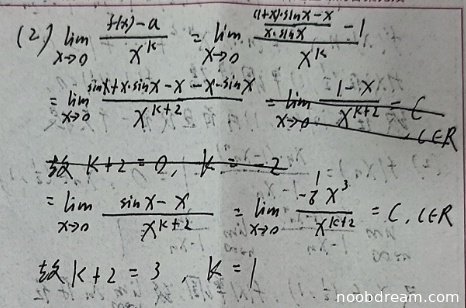 (2) lim_{x→0} (f(x)-a)/x^k = lim_{x→0} (((1+x)·sinx-x)/(x·sinx) -1)/x^k
= lim_{x→0} (sinx+x·sinx-x-x·sinx)/x^{k+2} = lim_{x→0} (1-x)/x^{k+2} = C, C∈R
故 k+2=0, k=-2
= lim_{x→0} (sinx-x)/x^{k+2} = lim_{x→0} (-1/6 x^3)/x^{k+2} = C, C∈R
故 k+2=3 k=1
noobdream.com